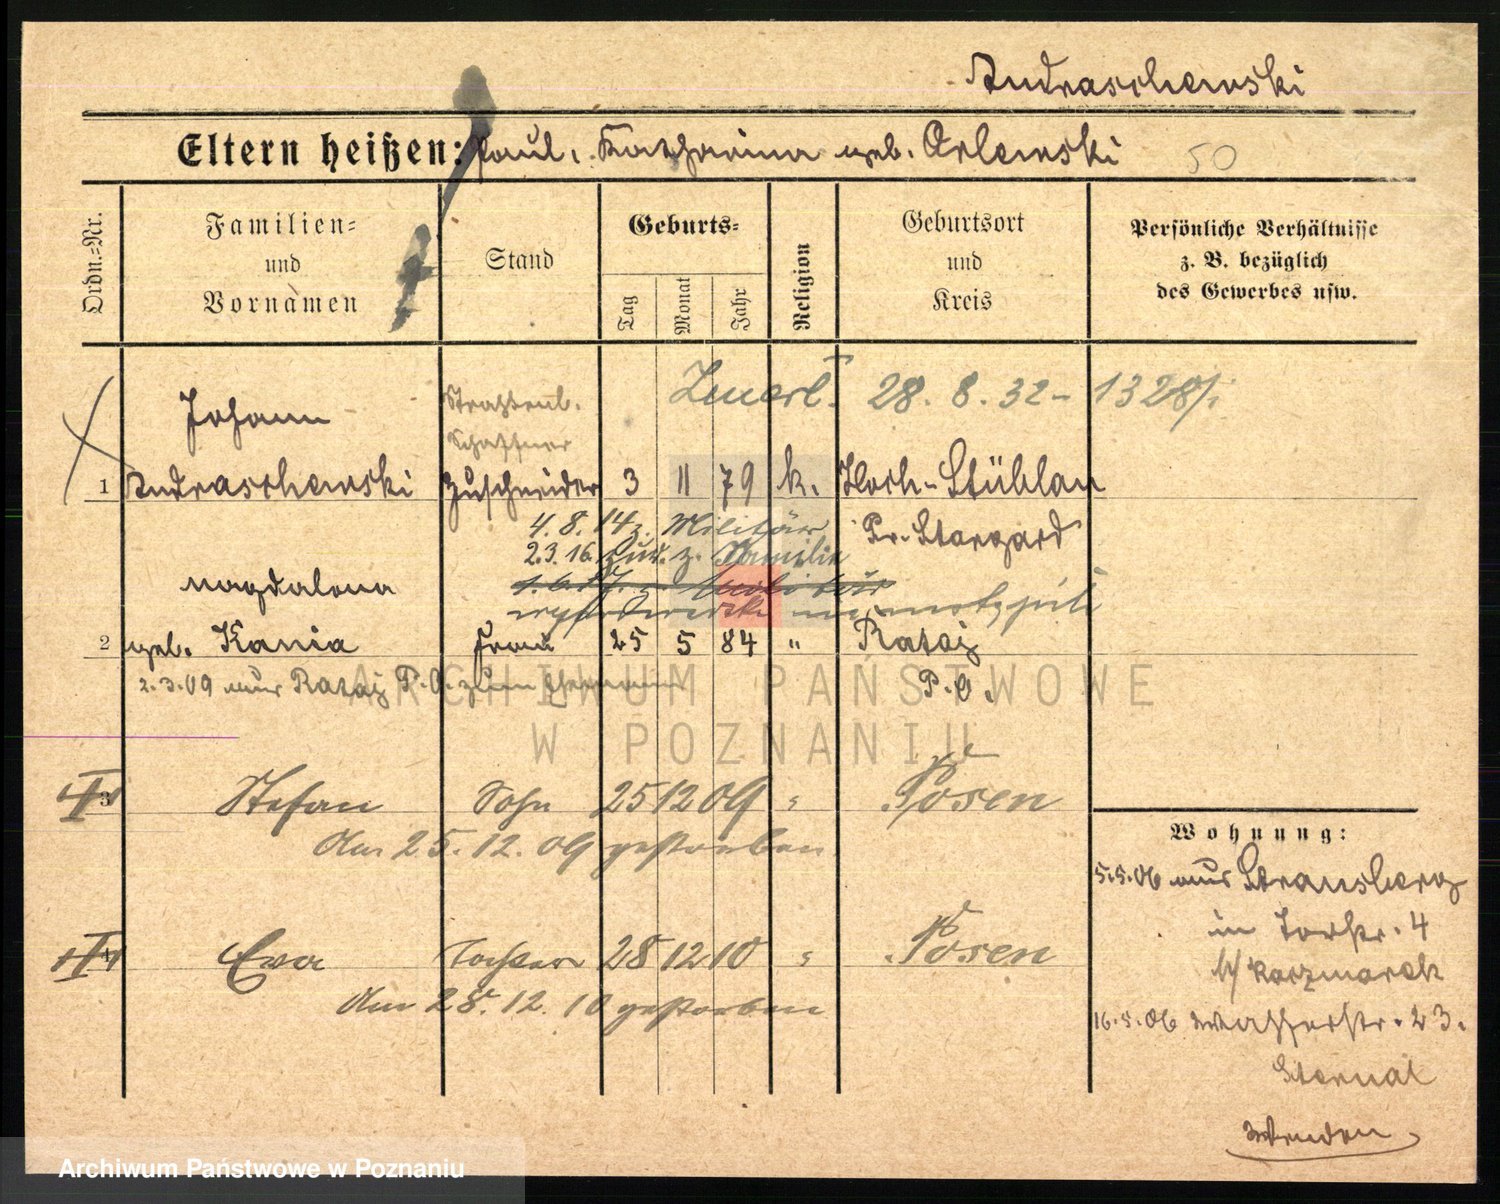 Andraschewski
Eltern heißen: Paul, Katharina geb. Orlewski 50
Ordn.=Nr.
Familien=
und
Vornamen
Stand
Geburts=
Tag
Monat
Jahr
Religion
Geburtsort
und
Kreis
Persönliche Verhältnisse
z. B. bezüglich
des Gewerbes usw.
28. 8. 32 - 1328/
Johann
Straßenb.
Schaffner
1 Andraschewski Zuschneider 3 11 79 k. Hoch-Stüblau
Pr. Stargard
4. 8. 14 z. Militär
2.3.16. z. Familie
Magdalena
2 geb. Kania Frau 25 5 84 " Rataj
2.3.09 aus Rataj P.O. zum Ehemann
P.O.
3 Stefan Sohn 25 12 09 " Posen
Am 25. 12. 09 gestorben
4 Eva Tochter 28 12 10 " Posen
Am 28. 12. 10 gestorben
Wohnung:
5.5.06 aus Strausberg
in Torstr. 4
b/ Karzmarek
16.5.06 Wasserstr. 23.
Sternal
Wenden
ARCHIWUM PAŃSTWOWE
W POZNANIU
Archiwum Państwowe w Poznaniu